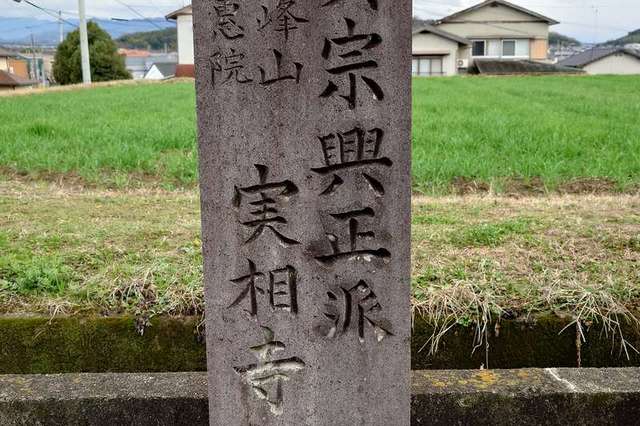 宗興正派
峰山
憲院
実相寺